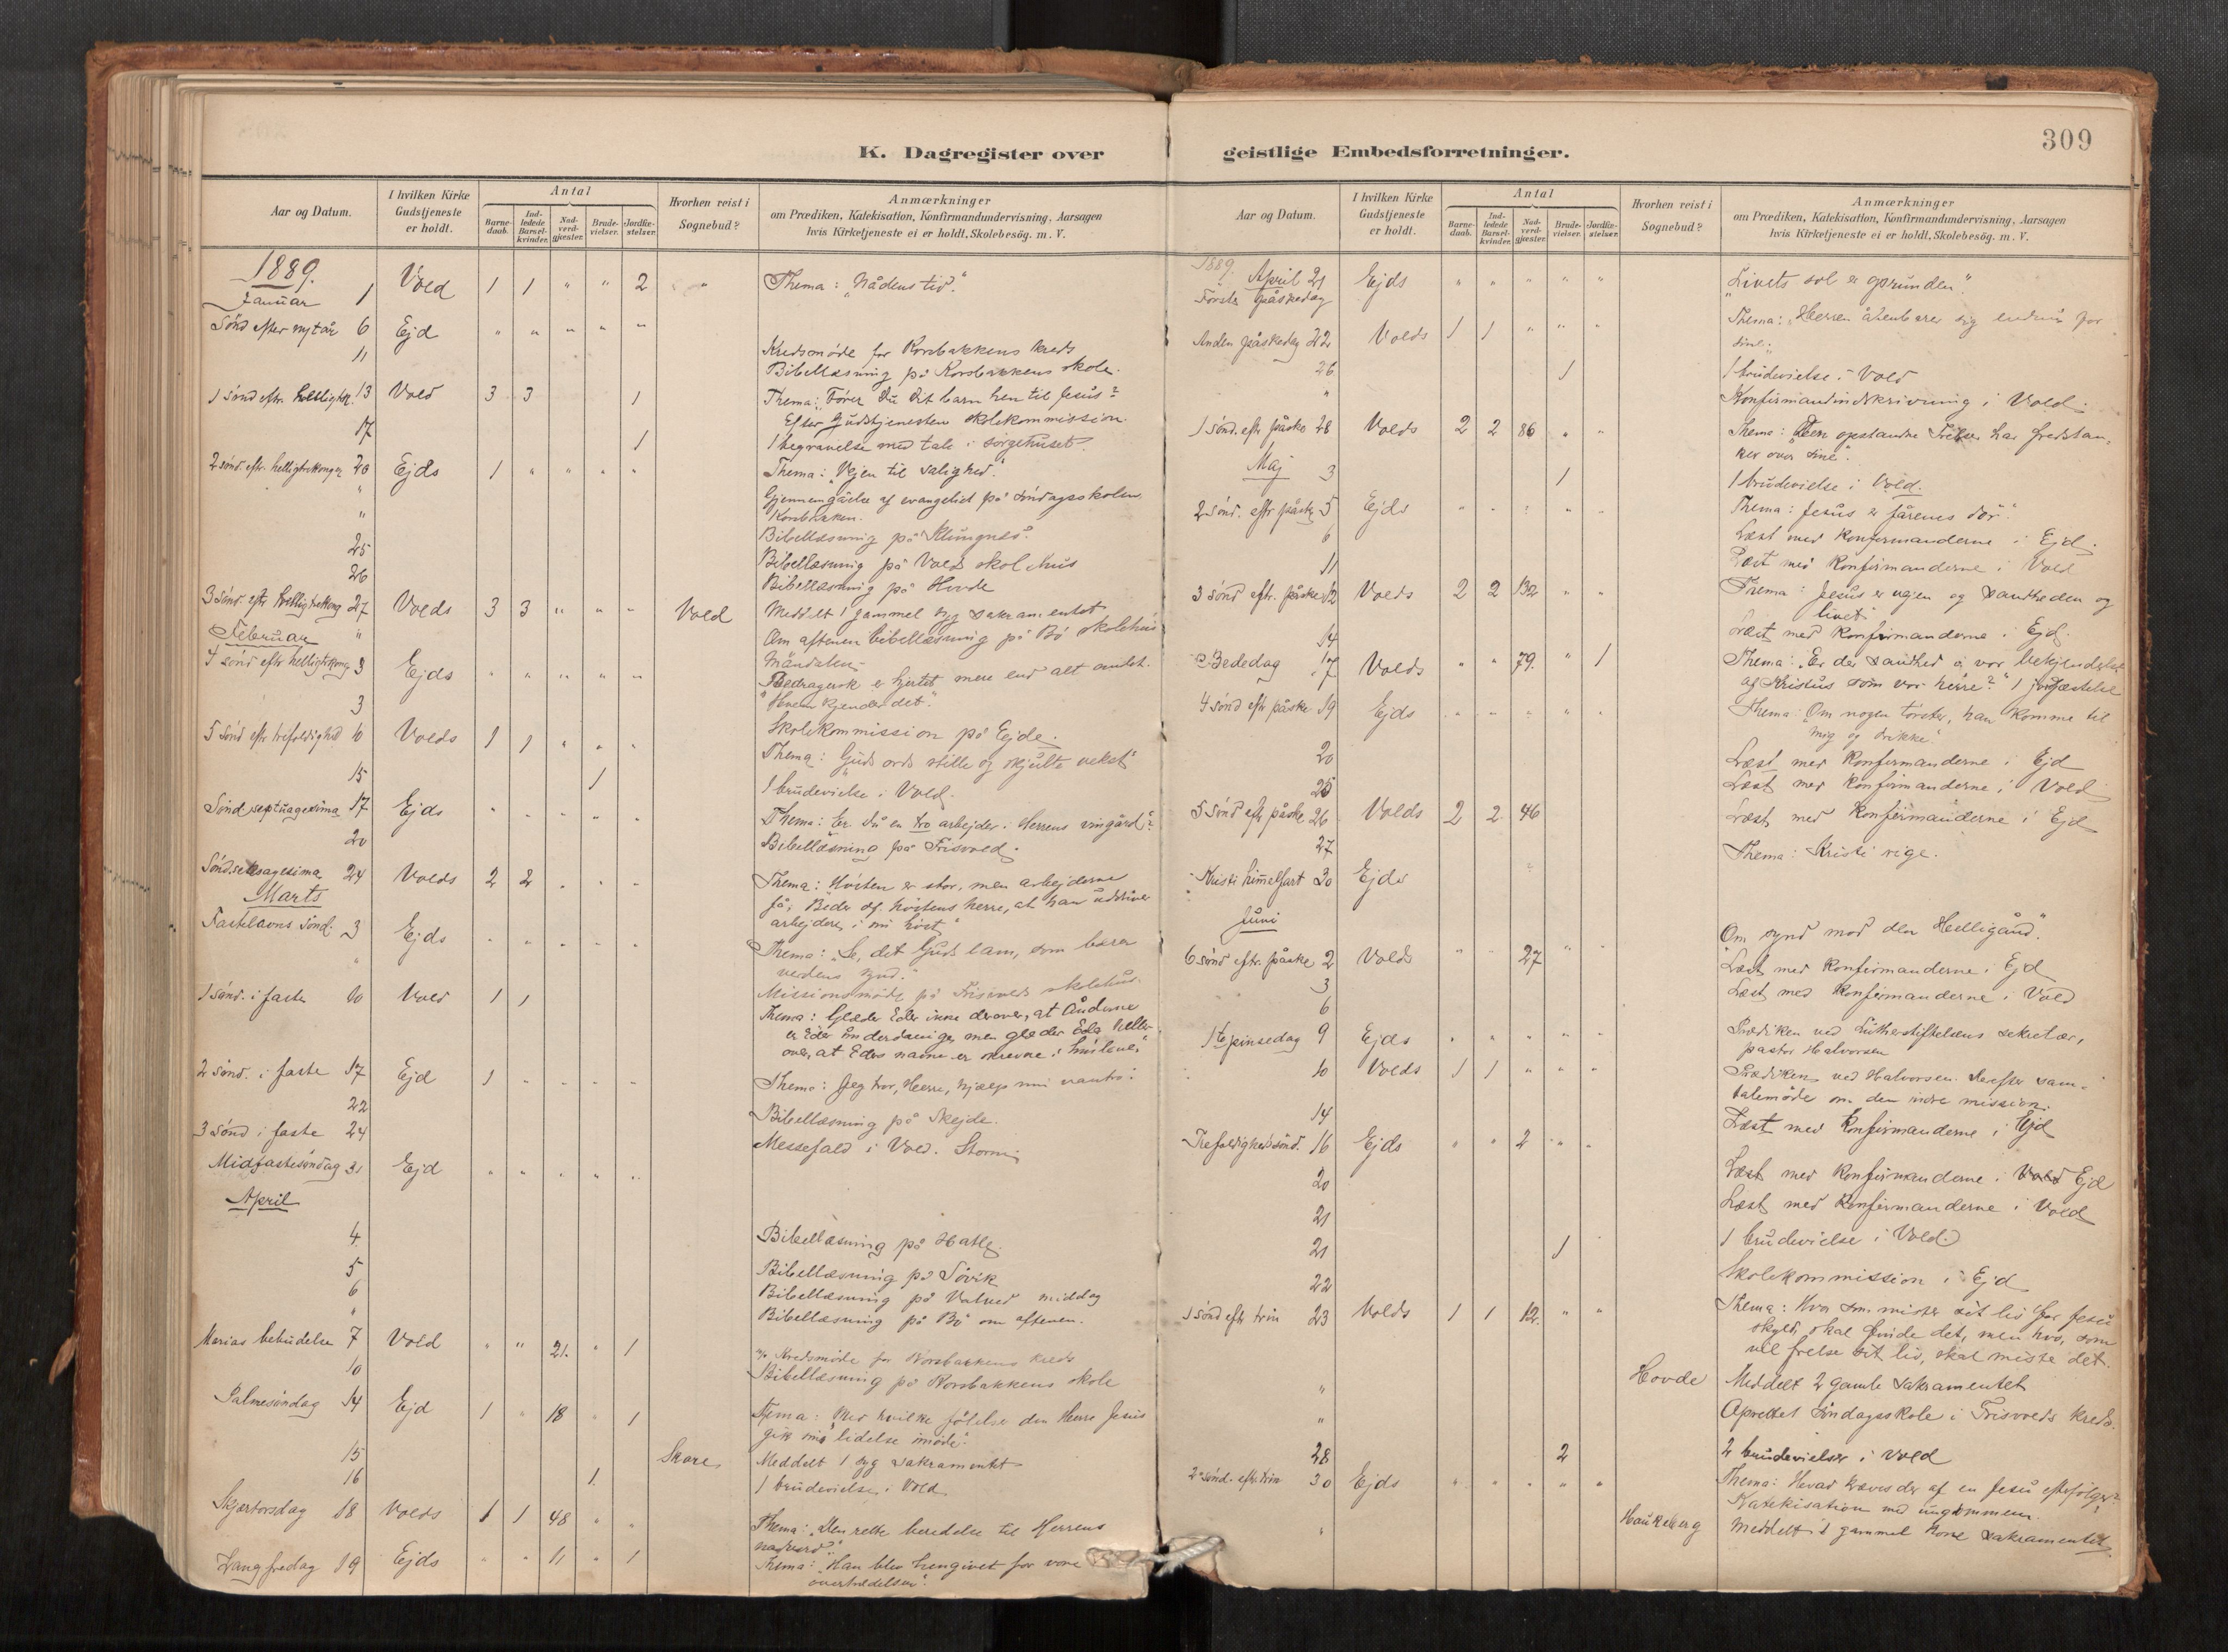 K. Dagregister over
Aar og Datum.
I hvilken Kirke Gudstjeneste er holdt.
Antal
Barnedaab.
Indledede Barselkvinder.
Nadverdgjester.
Brudevielser.
Jordfæstelser.
Hvorhen reist i Sognebud?
Anmærkninger
om Prædiken, Katekisation, Konfirmandundervisning, Aarsagen
hvis Kirketjeneste ei er holdt, Skolebesög. m. V.
1889.
Januar 1 Vold 1 1 " " 2 " Thema: "Nådens tid".
Sönd efter nytår 6 Ejd " " " " "
11 Kredsmöde for Korsbakkens kreds
Bibellæsning på Korsbakkens skole.
1 sönd eftr. helligtk. 13 Vold 3 3 1 Thema: "Förer Du dit barn hen til Jesus?
Efter gudstjenesten skolekommission.
17 1 1 begravelse med tale i sörgehuset.
2 sönd. eftr. helligtrekonger 20 Ejds 1 " " " " Thema: "Vejen til salighed".
" Gjennemgåelse af evangeliet på söndagsskolen
Korsbakken.
" Bibellæsning på Klungnes.
25 Bibellæsning på Volds skolehus
26 Bibellæsning på Hovde
3 sönd. eftr helligtrekong 27 Volds 3 3 " " " Vold Meddelt 1 gammel syg sakramentet
" Om aftenen bibellæsning på Bö skolehus
Februar Måndalen.
4 sönd eftr helligtrekong 3 Ejds " " " " " Bedragersk er hjertet mere end alt andet.
"Hvem kjender det".
3 Skolekommission på Ejde.
5 sönd eftr trefoldighed 10 Volds 1 1 " " " Thema: "Guds ords stille og skjulte vekst"
15 1 1 brudevielse i Vold.
Sönd septuagesima 17 Ejds " " " " " Thema: Er du en tro arbejder i Herrens vingård?
20 Bibellæsning på Frisvold.
Sönd. seksagesima 24 Volds 2 2 " " " Thema: Hösten er stor, men arbejderne
få; Beder df. höstens herre, at han uddriver
arbejdere i sin höst"
Marts
Fastelavns sönd. 3 Ejds " " " " " Thema: "Se, det Guds lam, som bærer
verdens synd."
" Missionsmöde på Frisvolds skolehus.
1 sönd. i faste 10 Vold 1 1 Thema: Glæder Eder ikke derover, at Ånderne
er Eder underdanige, men glæder Eder heller
over, at Eders navne er skrevne i himlene"
2 sönd. i faste 17 Ejd 1 " " " " Thema: Jeg tror, Herre, hjælp min vantro!
22 Bibellæsning på Skejde.
3 sönd i faste 24 Messefald i Vold. Storm
Midfastesöndag 31 Ejd " " " " "
April
4. Bibellæsning på Hatle.
5 Bibellæsning på Sövik
6 Bibellæsning på Valved middag
" Bibellæsning på Bö om aftenen.
Marias bebudelse 7 Vold " " 21. " 1
10 Kredsmöde for Korsbakkens kreds
Bibellæsning på Korsbakkens skole
Palmesöndag 14 Ejd 1 " 18 " 1 Thema: Med hvilke fölelse den Herre Jesus
gik sin lidelse imöde".
15 Skare Meddelt 1 syg sakramentet
16 1 1 brudevielse i Vold
Skjærtorsdag 18 Volds 1 1 48 " " Thema: "Den rette beredelse til Herrens
nadverd".
Langfredag 19 Ejds " " 11 " 1 Thema: "Han blev hengivet for vore
overtrædelser".
309
geistlige Embedsforretninger.
Aar og Datum.
I hvilken Kirke Gudstjeneste er holdt.
Antal
Barnedaab.
Indledede Barselkvinder.
Nadverdgjester.
Brudevielser.
Jordfæstelser.
Hvorhen reist i Sognebud?
Anmærkninger
om Prædiken, Katekisation, Konfirmandundervisning, Aarsagen
hvis Kirketjeneste ei er holdt, Skolebesög. m. V.
1889.
April 21 Ejds " " " " " "Livets sol er oprunden".
Förste påskedag
Anden påskedag 22 Volds 1 1 " " " Thema: Herren åbenbarer sig endnu for
sine.
26 1 1 brudevielse i Vold
" Konfirmandindskrivning i Vold
1 sönd. eftr påske 28 Volds 2 2 86 " " Thema: "Den opstandne Frelser har fredstan-
ker over sine".
Maj 3 1 1 brudevielse i Vold.
2 sönd. eftr påske 5 Ejds " " " " " Thema: Jesus er fårenes dör".
6 Læst med konfirmanderne i Ejd.
11 Læst med konfirmanderne i Vold
3 sönd eftr. påske 12 Volds 2 2 132 " " Thema: Jesus er vejen og sandheden og
livet"
14 Læst med konfirmanderne i Ejd.
Bededag 17 Volds " " 79. " 1 Thema: "Er der sandhed i vor bekjendelse
af Kristus som vor herre?" 1 jordfæstelse
4 sönd eftr påske 19 Ejds " " " " " Thema: Om nogen törster, han komme til
mig og drikke".
20 Læst med konfirmanderne i Ejd
25 Læst med konfirmanderne i Vold
5 sönd eftr påske 26 Volds 2 2 46
27 Læst med konfirmanderne i Ejd
Kristi himmelfart 30 Ejds Thema: Kristi rige.
Juni
6 sönd eftr. påske 2 Volds " " 27 " " "Om synd mod den Helligånd".
3 Læst med konfirmanderne i Ejd
6 Læst med konfirmanderne i Vold
1ste pinsedag 9 Ejds " " " " " Prædiken ved Lutherstiftelsens sekretær,
pastor Halvorsen
10 Volds 1 1 " " " Prædiken ved Halvorsen. Derefter sam-
talemöde om den indre mission.
14 Læst med konfirmanderne i Ejd
Trefoldigheds sönd. 16 Ejds " " 2 " "
20 Læst med konfirmanderne i Vold Ejd
21 Læst med konfirmanderne i Vold
21 1 1 brudevielse i Vold
22 Skolekommission i Ejd
1 sönd eftr trin 23 Volds 1 1 12. " " Thema: Hvo som mister sit liv for Jesu
skyld, skal finde det, men hvo, som
vil frelse sit liv, skal miste det.
" Hovde Meddelt 2 gamle sakramentet
" Oprettet söndagsskole i Frisvolds kreds.
28 2 2 brudevielser i Vold
2 sönd. eftr. trin 30 Ejds " " " " " Thema: Hvad kræves der af en Jesu efterfölger?
Katekisation med ungdommen
" Haukeberg Meddelt 1 gammel kone sakramentet